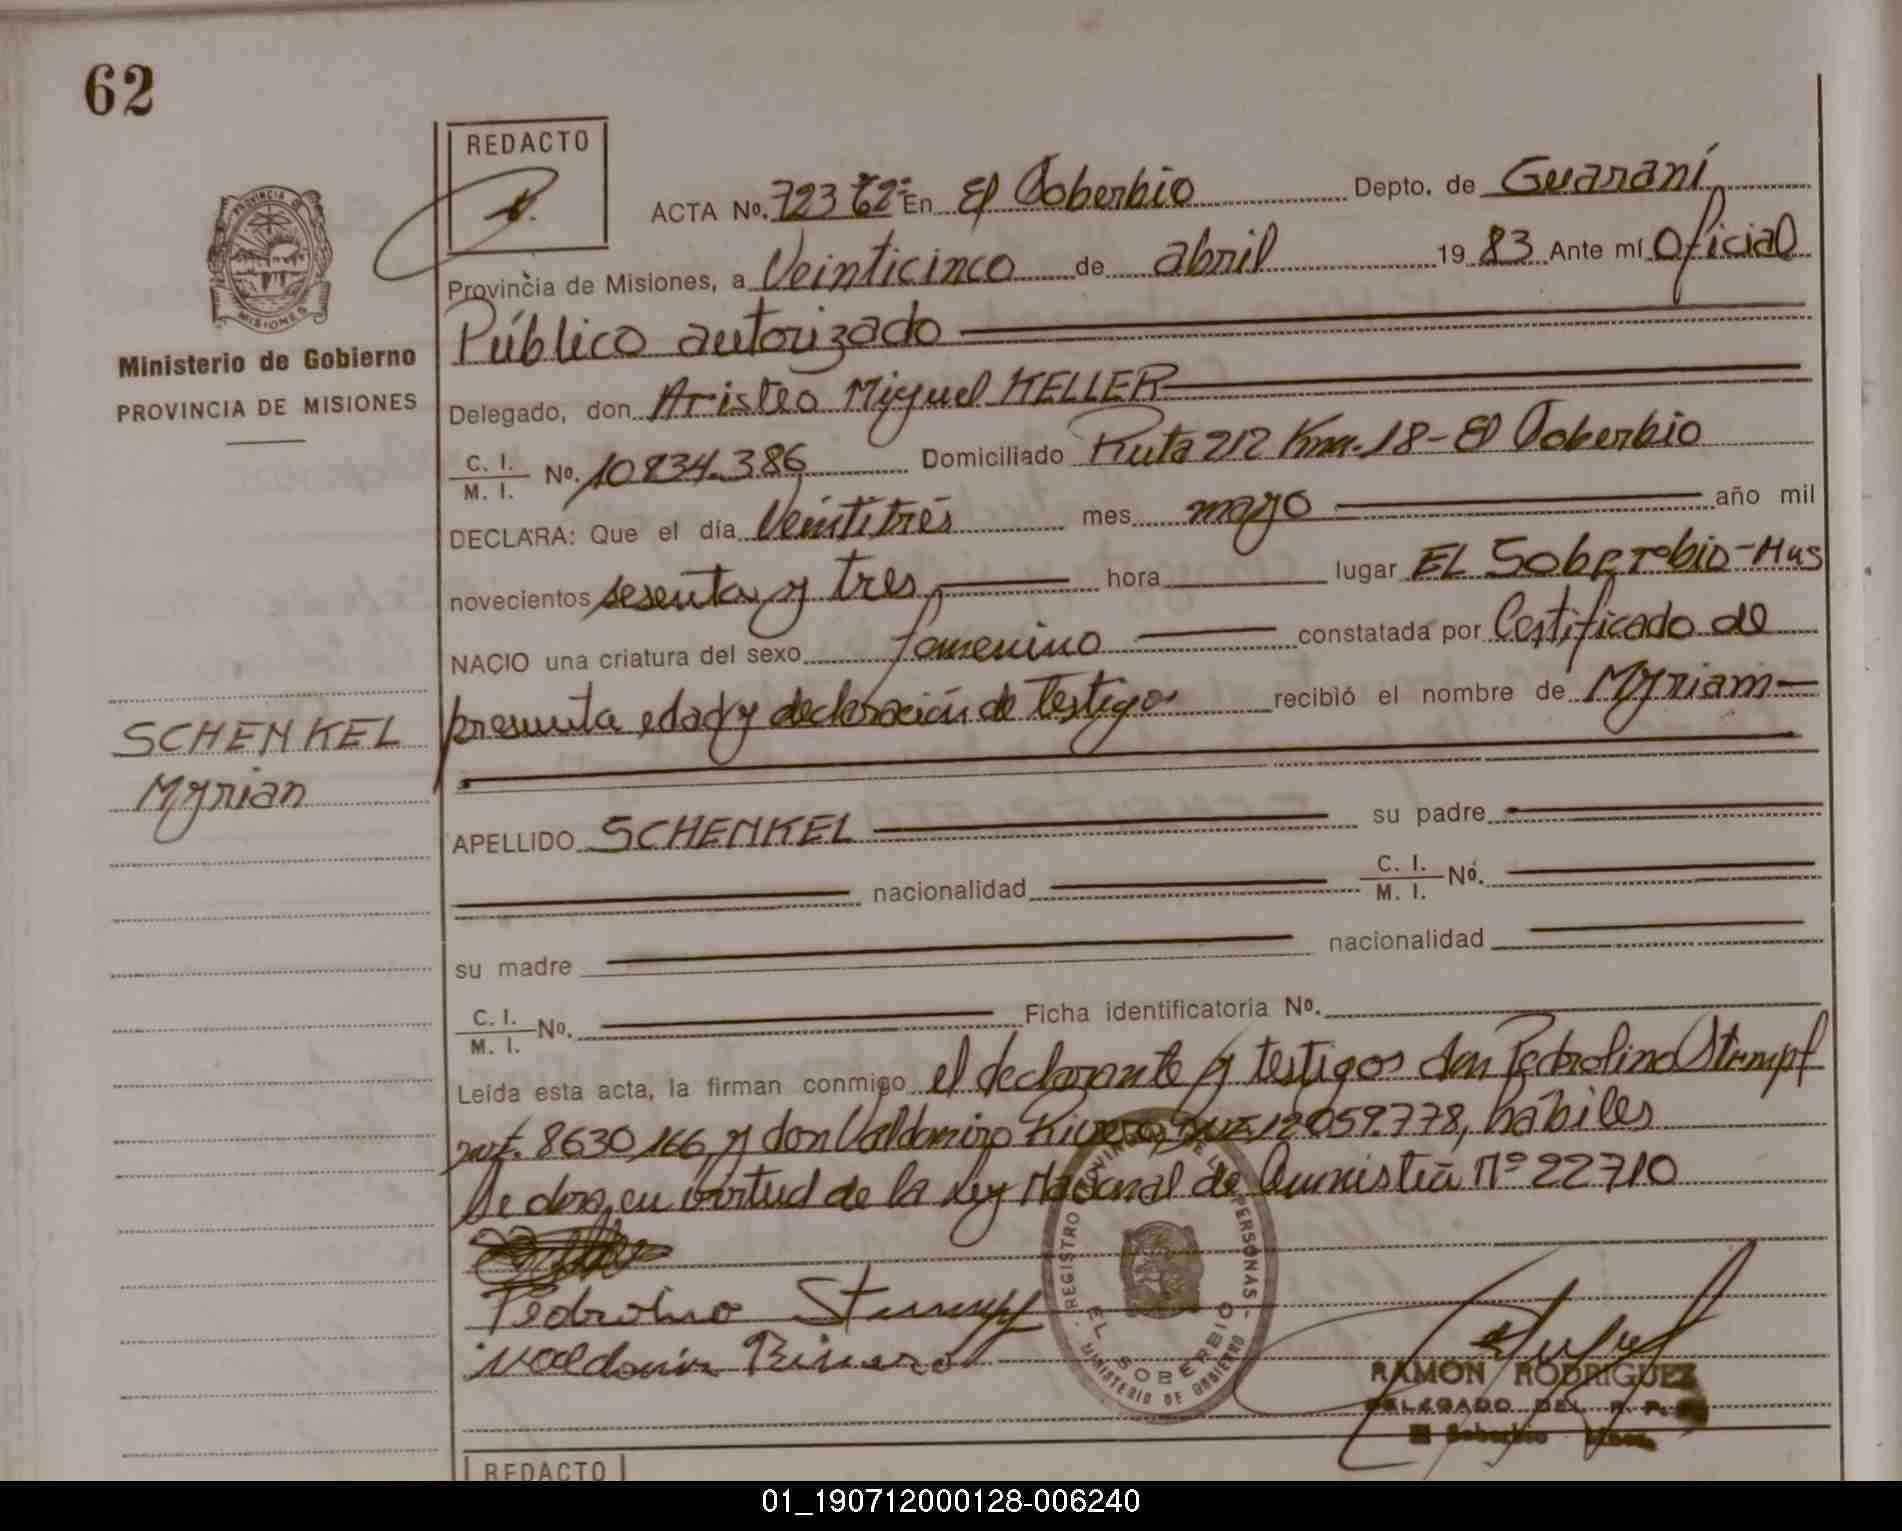 62
REDACTO
ACTA No. 723 T2º En El Soberbio Depto. de Guaraní
Provincia de Misiones, a Veinticinco de abril 1983 Ante mí Oficial
Público autorizado
Ministerio de Gobierno
PROVINCIA DE MISIONES
Delegado, don Aristeo Miguel KELLER
C. I. / M. I. No. 10834.386 Domiciliado Ruta 212 Km.18-El Soberbio
DECLARA: Que el día Veintitrés mes mayo año mil
novecientos sesenta y tres hora lugar EL Soberbio-Mns
NACIO una criatura del sexo femenino constatada por Certificado de
presunta edad y declaración de Testigos recibió el nombre de Myriam
SCHENKEL
Myrian
APELLIDO SCHENKEL su padre
nacionalidad C. I. / M. I. No.
su madre nacionalidad
C. I. / M. I. No. Ficha identificatoria No.
Leída esta acta, la firman conmigo el declarante y testigos don Pedrolino Stumpf
8630166 y don Valdomiro Rivero 12059.778, hábiles
en virtud de la Ley Nacional de Amnistía Nº 22710
Pedrolino Stumpf
Valdomir Rivero
REGISTRO PROVINCIAL DE LAS PERSONAS
EL SOBERBIO
MINISTERIO DE GOBIERNO
RAMON RODRIGUEZ
DELEGADO DEL R. P.
El Soberbio
REDACTO
01_190712000128-006240